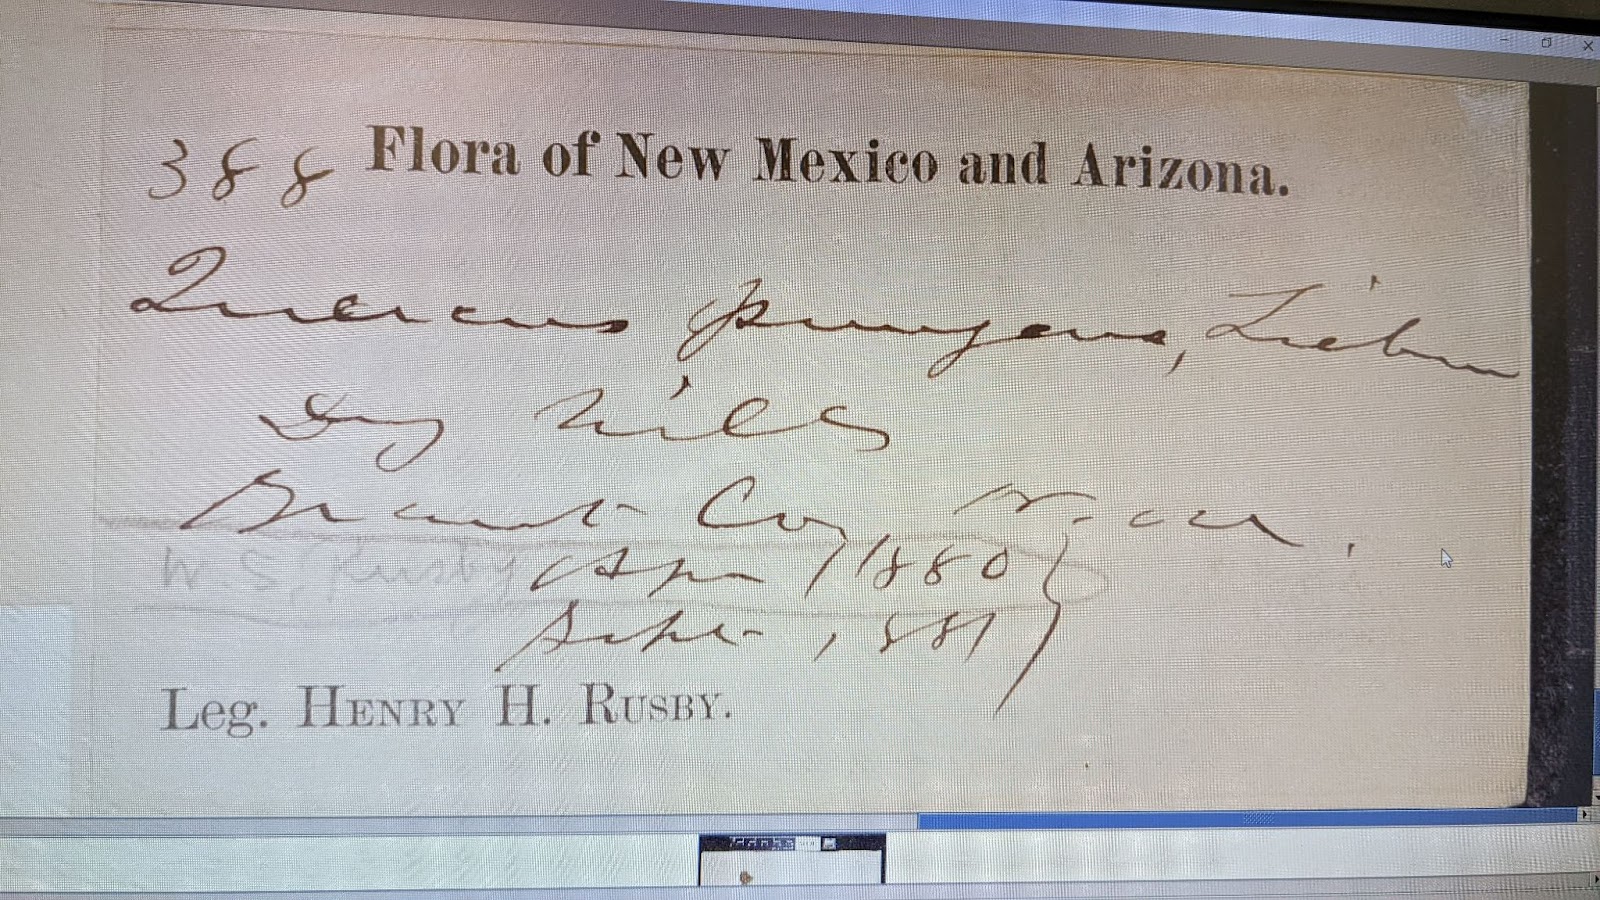 388 Flora of New Mexico and Arizona.
Quercus pungens, Liebm
Dry hills
Grant Co, N. Mex.
W S Rusby
Apr / 1880
Sept , 881
Leg. HENRY H. RUSBY.